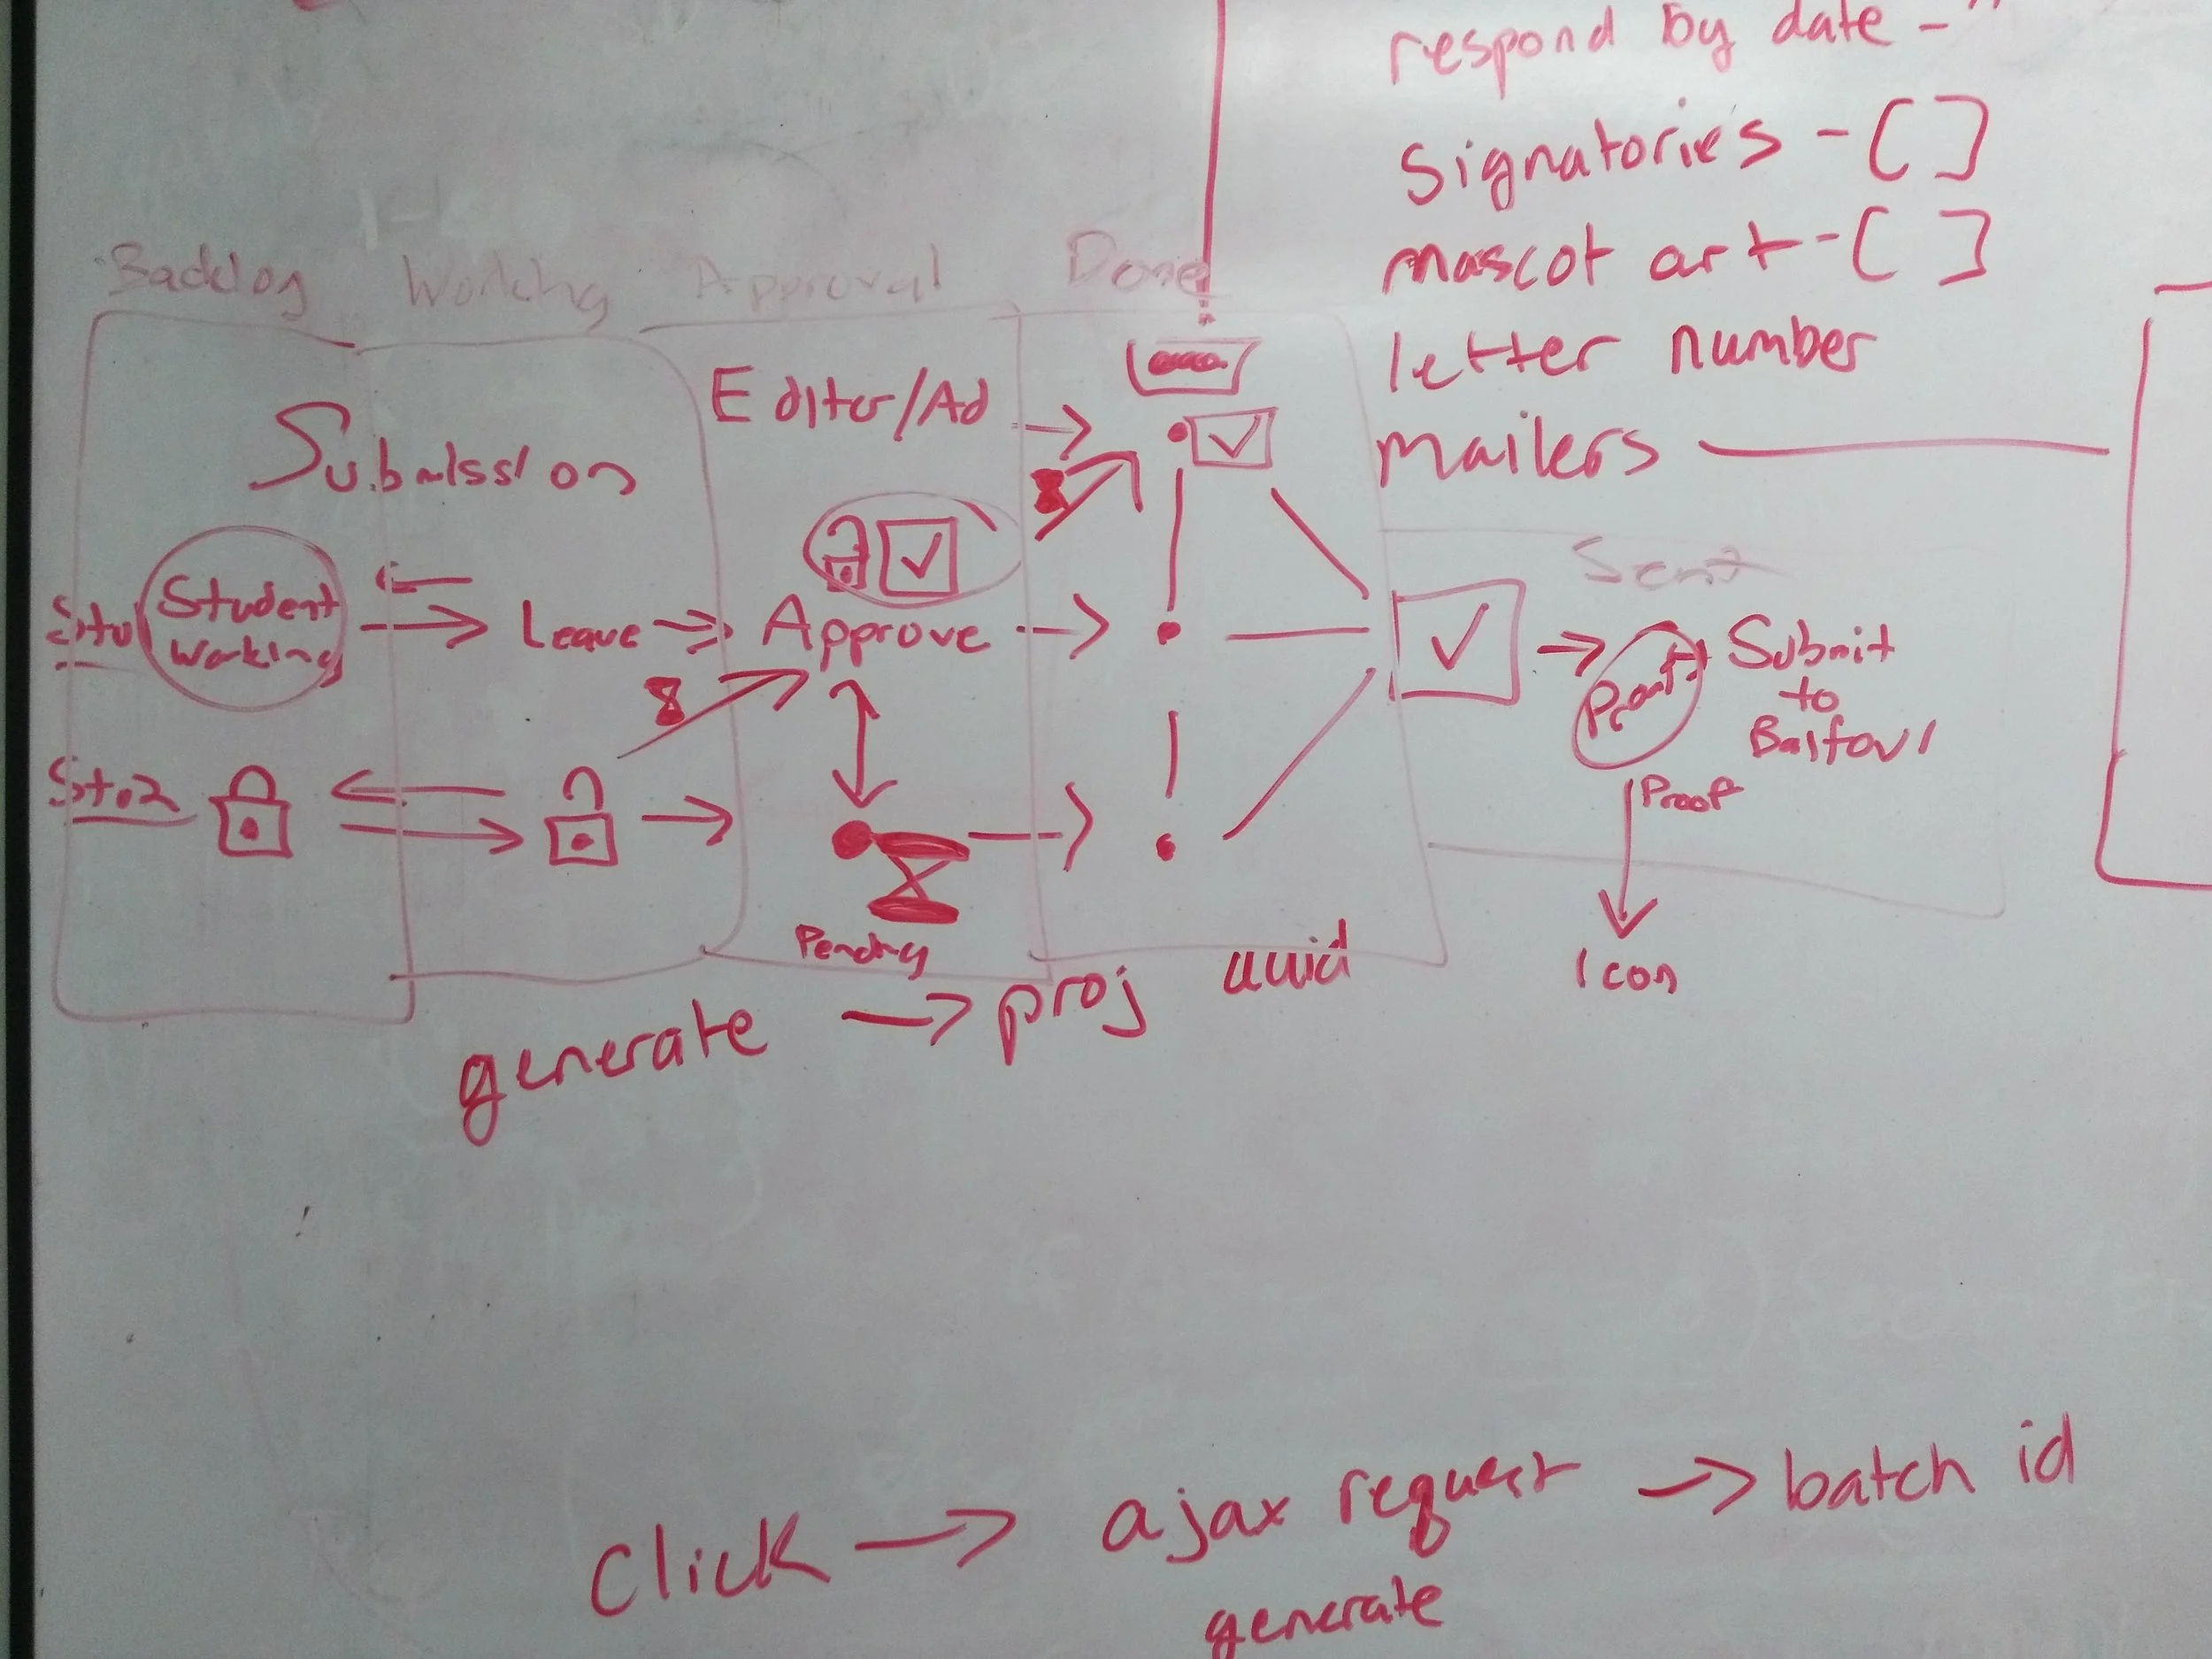 respond by date - "
Signatories - [ ]
mascot art - [ ]
letter number
mailers
Backlog Working Approval Done
Submission
Editor/Ad
Student
Working
Leave
Approve
Pending
Sent
Submit
to
Balfour
Proof
Icon
generate → proj uuid
click → ajax request → batch id
generate